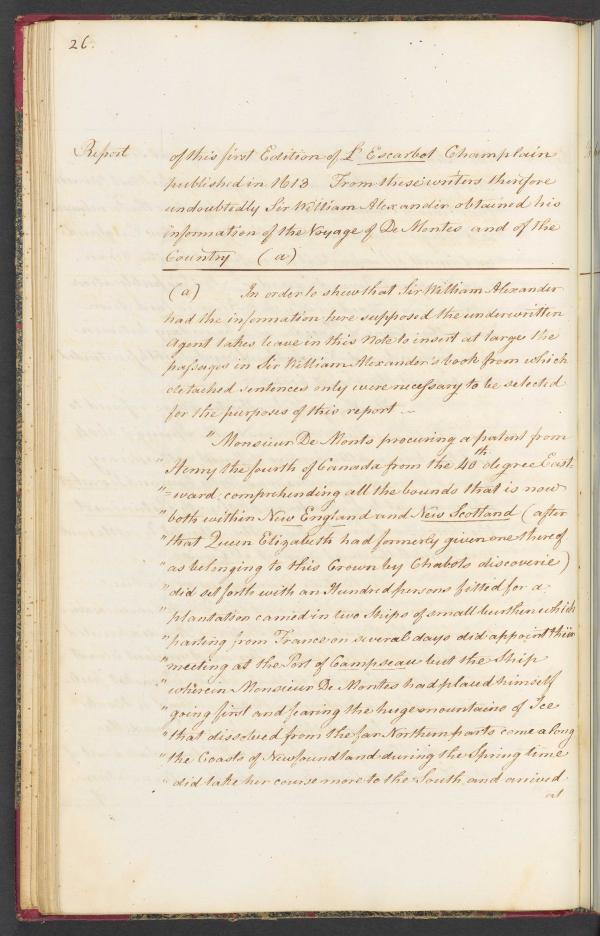 26.
Report
of this first Edition of L'Escarbot Champlain
published in 1613 From these writers therefore
undoubtedly Sir William Alexander obtained his
information of the Voyage of De Montes and of the
Country (a)
(a) In order to shew that Sir William Alexander
had the information here supposed the underwritten
Agent takes leave in this Note to insert at large the
passages in Sir William Alexander's book from which
detached sentences only were necessary to be selected
for the purposes of this report —
"Monsieur De Monts procuring a patent from
"Henry the fourth of Canada from the 40th degree East-
"=ward comprehending all the bounds that is now
"both within New England and New Scotland (after
"that Queen Elizabeth had formerly given one thereof
"as belonging to this Crown by Chabots discoverie)
"did set forth with an Hundred persons fitted for a
"plantation carried in two Ships of small burthen which
"parting from France on several days did appoint their
"meeting at the Port of Campseau but the Ship
"wherein Monsieur De Montes had placed himself
"going first and fearing the huge mountains of Ice
"that dissolved from the far Northern parts come along
"the Coasts of Newfoundland during the Spring time
"did take her course more to the South and arrived
at